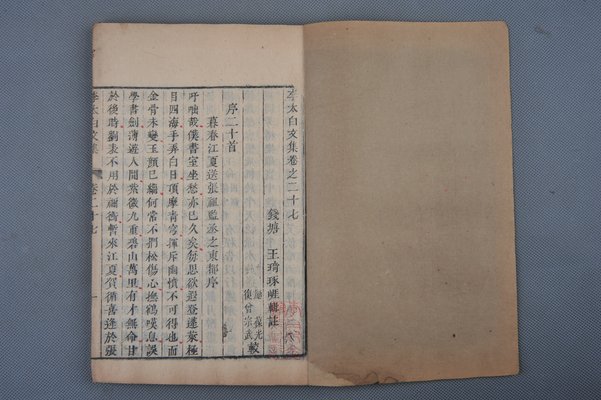 李太白文集卷之二十七
錢塘 王琦琢崖輯註
縉 葆光
復曾宗武 較
序二十首
暮春江夏送張祖監丞之東都序
吁咄哉僕書室坐愁亦已久矣每思欲遐登蓬萊極
目四海手弄白日頂摩青穹揮斥幽憤不可得也而
金骨未變玉顏已緇何常不捫松傷心撫鶴嘆息誤
學書劍薄遊人間紫微九重碧山萬里有才無命甘
於後時劉表不用於禰衡暫來江夏賀循喜逢於張
李太白文集 卷二十七 一